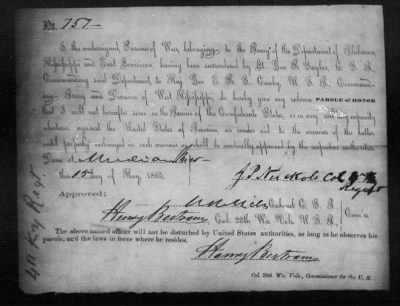 No. 757
I, the undersigned, Prisoner of War, belonging to the Army of the Department of Alabama,
Mississippi and East Louisiana, having been surrendered by Lt. Gen. R. Taylor, C. S. A.,
Commanding said Department, to Maj. Gen. E. R. S. Canby, U. S. A., Command-
ing Army and Division of West Mississippi, do hereby give my solemn PAROLE of HONOR
that I will not hereafter serve in the Armies of the Confederate States, or in any military capacity
whatever, against the United States of America, or render aid to the enemies of the latter,
until properly exchanged in such manner as shall be mutually approved by the respective authorities.
Done at Meridian Miss
this 15 day of May, 1865.
J. P. Nuckols Col 4th Ky
Regt
Approved:
Col. C. S. A.
Henry Bertram Col. 20th Wis. Vols. U. S. A.
Com'rs
The above named officer will not be disturbed by United States authorities, as long as he observes his
parole, and the laws in force where he resides.
Henry Bertram
Col. 20th Wis. Vols., Commissioner for the U. S.
4th Ky Regt